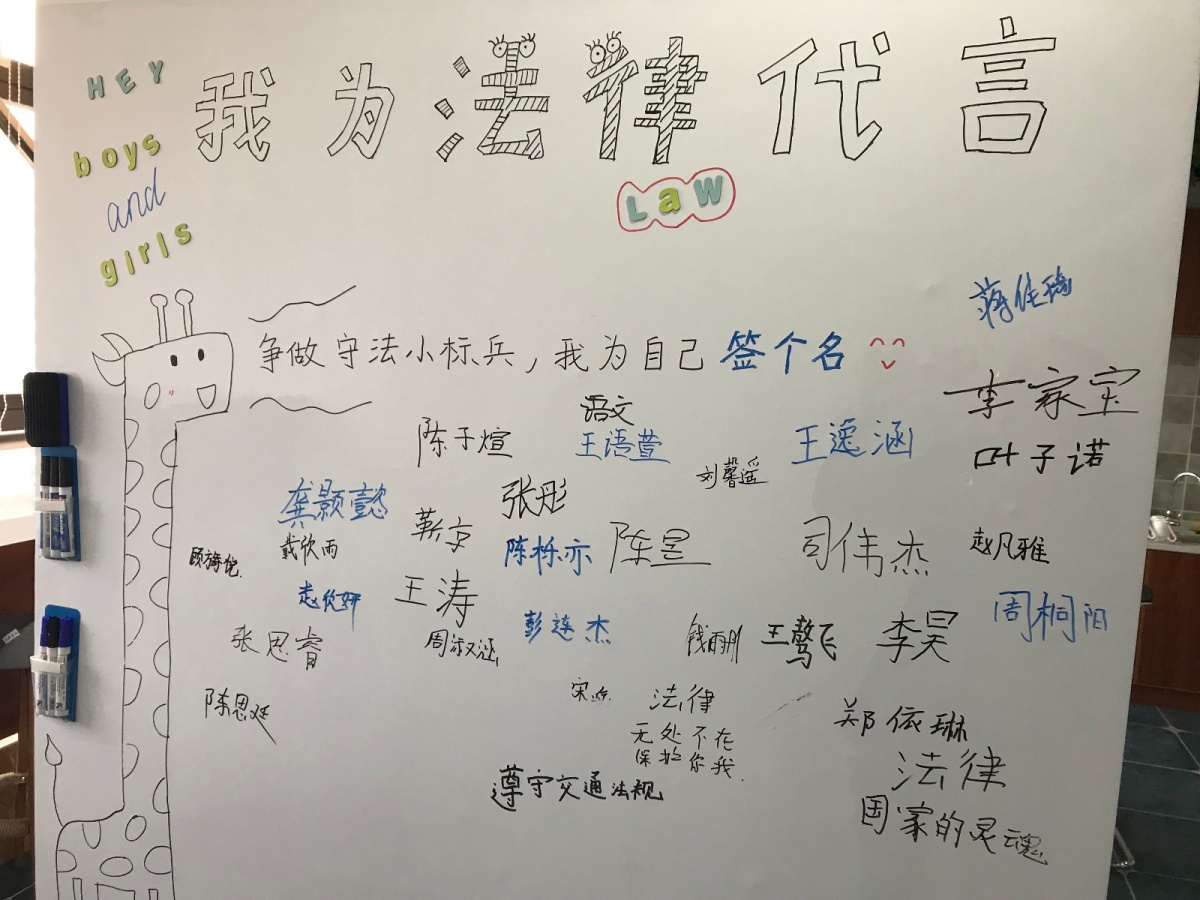 HEY
boys
and
girls
我为法律代言
LaW
争做守法小标兵，我为自己签个名
李家宝
语文
陈子煊
王语萱
王逸涵
叶子诺
刘馨遥
龚颢懿
张彤
靳京
戴欣雨
陈栎亦
陈昱
司伟杰
赵凡雅
赵欣妍
王涛
彭连杰
周桐阳
张思睿
周淑涵
钱雨彤
王骜飞
李昊
陈思廷
法律
无处不在
保护你我.
郑依琳
遵守交通法规
法律
国家的灵魂